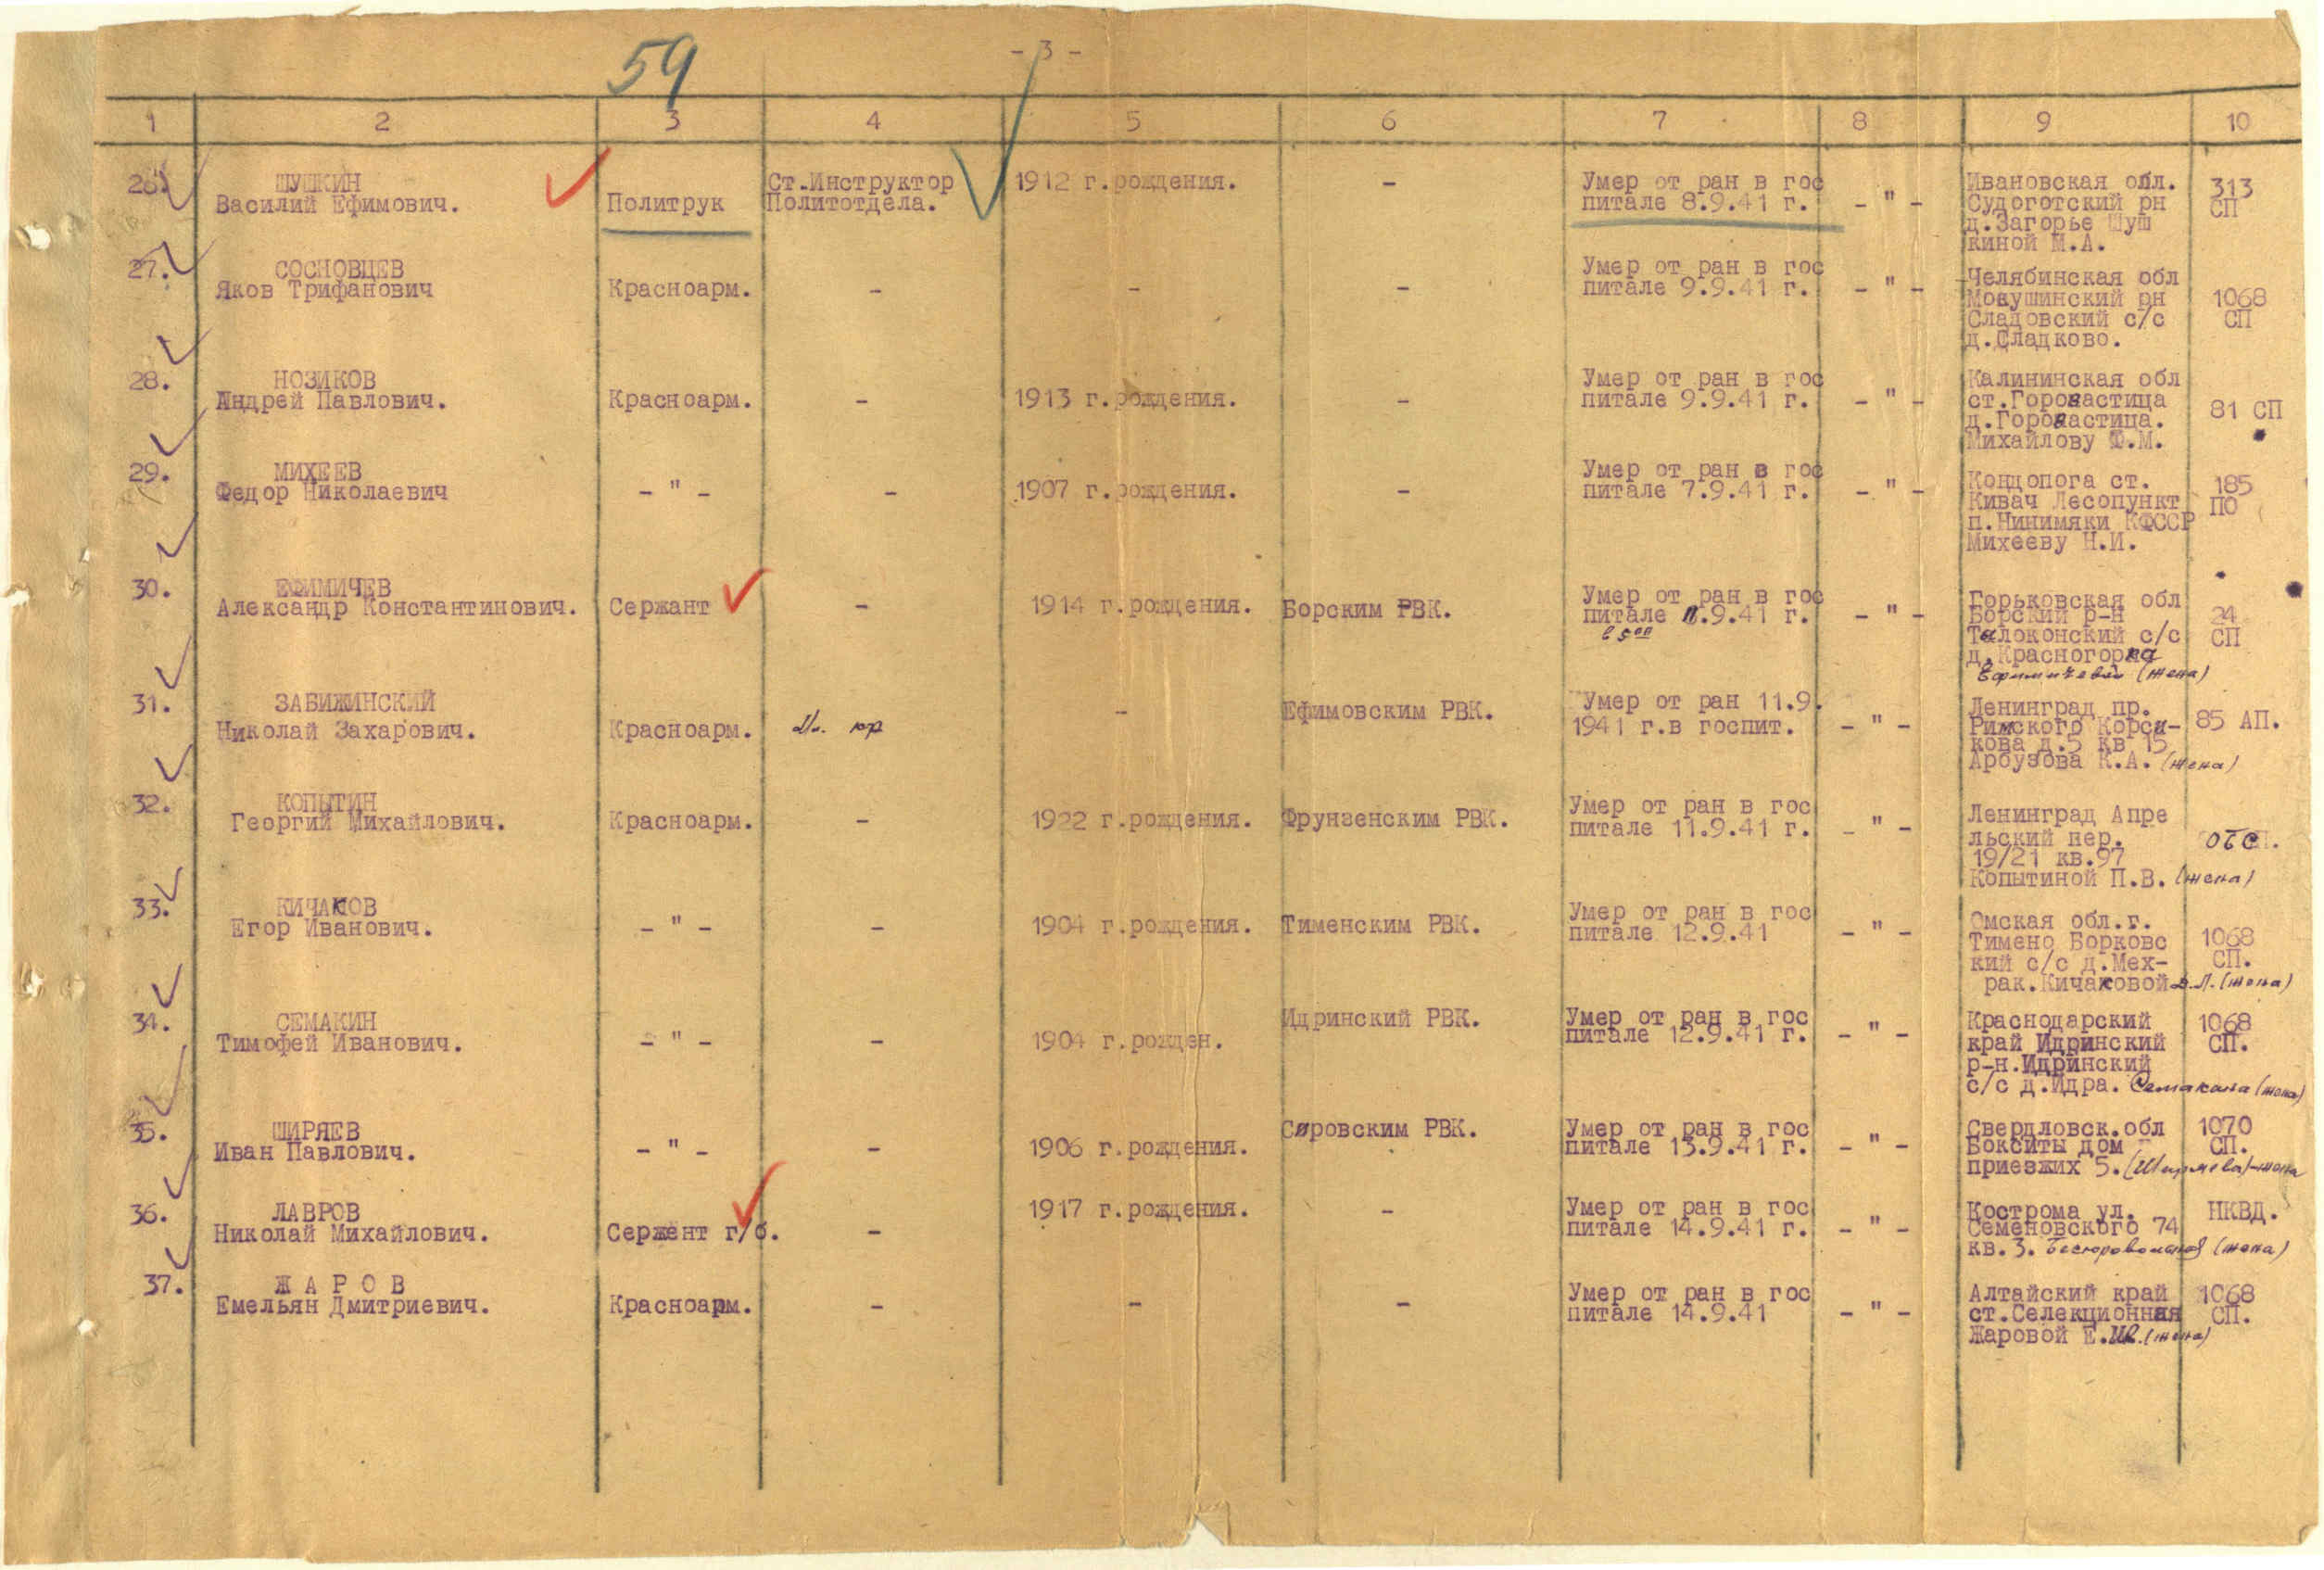 59
- 3 -
1 2 3 4 5 6 7 8 9 10
26. ШУШКИН
Василий Ефимович.
Политрук
Ст.Инструктор
Политотдела.
1912 г.рождения.
-
Умер от ран в гос
питале 8.9.41 г.
- " -
Ивановская обл.
Судоготский рн
д.Загорье Шуш
киной М.А.
313
СП
27. СОСНОВЦЕВ
Яков Трифанович
Красноарм.
-
-
-
Умер от ран в гос
питале 9.9.41 г.
- " -
Челябинская обл
Мокушинский рн
Сладовский с/с
д.Сладково.
1068
СП
28. НОЗИКОВ
Андрей Павлович.
Красноарм.
-
1913 г.рождения.
-
Умер от ран в гос
питале 9.9.41 г.
- " -
Калининская обл
ст.Горовастица
д.Горовастица.
Михайлову Ф.М.
81 СП
29. МИХЕЕВ
Федор Николаевич
- " -
-
1907 г.рождения.
-
Умер от ран в гос
питале 7.9.41 г.
- " -
Кондопога ст.
Кивач Лесопункт
п.Нинимяки КФССР
Михееву Н.И.
185
ПО
30. ЕФИМИЧЕВ
Александр Константинович.
Сержант
-
1914 г.рождения.
Борским РВК.
Умер от ран в гос
питале 11.9.41 г.
в 5 00
- " -
Горьковская обл
Борский р-н
Талоконский с/с
д.Красногорка
Ефимичева (жена)
24
СП
31. ЗАБИЖИНСКИЙ
Николай Захарович.
Красноарм.
-
Ефимовским РВК.
Умер от ран 11.9.
1941 г.в госпит.
- " -
Ленинград пр.
Римского Корса-
кова д.5 кв 15
Арбузова К.А. (жена)
85 АП.
32. КОПЫТИН
Георгий Михайлович.
Красноарм.
-
1922 г.рождения.
Фрунзенским РВК.
Умер от ран в гос
питале 11.9.41 г.
- " -
Ленинград Апре
льский пер.
19/21 кв.97
Копытиной П.В. (жена)
33. КИЧАКОВ
Егор Иванович.
- " -
-
1904 г.рождения.
Тименским РВК.
Умер от ран в гос
питале 12.9.41
- " -
Омская обл.г.
Тимено Борковс
кий с/с д.Мех-
рак.Кичаковой Д.Л. (жена)
1068
СП.
34. СЕМАКИН
Тимофей Иванович.
- " -
-
1904 г.рожден.
Идринский РВК.
Умер от ран в гос
питале 12.9.41 г.
- " -
Краснодарский
край Идринский
р-н.Идринский
с/с д.Идра. Семакина (жена)
1068
СП.
35. ШИРЯЕВ
Иван Павлович.
- " -
-
1906 г.рождения.
Сировским РВК.
Умер от ран в гос
питале 13.9.41 г.
- " -
Свердловск.обл
Бокситы дом
приезжих 5. (Ширяева)-жена
1070
СП.
36. ЛАВРОВ
Николай Михайлович.
Сержент г/б.
-
1917 г.рождения.
-
Умер от ран в гос
питале 14.9.41 г.
- " -
Кострома ул.
Семеновского 74
кв.3. (жена)
НКВД.
37. Ж А Р О В
Емельян Дмитриевич.
Красноарм.
-
-
-
Умер от ран в гос
питале 14.9.41
- " -
Алтайский край
ст.Селекционная
Жаровой Е.Ив.(жена)
1068
СП.